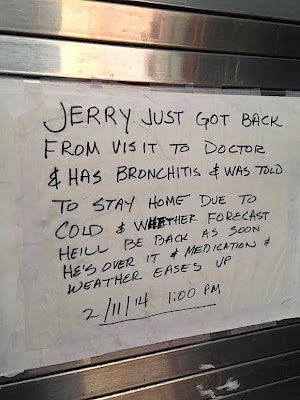 JERRY JUST GOT BACK
FROM VISIT TO DOCTOR
& HAS BRONCHITIS & WAS TOLD
TO STAY HOME DUE TO
COLD & WHETHER FORECAST
HEILL BE BACK AS SOON
HE'S OVER IT & MEDICATION &
WEATHER EASES UP
2/11/14 1:00 PM